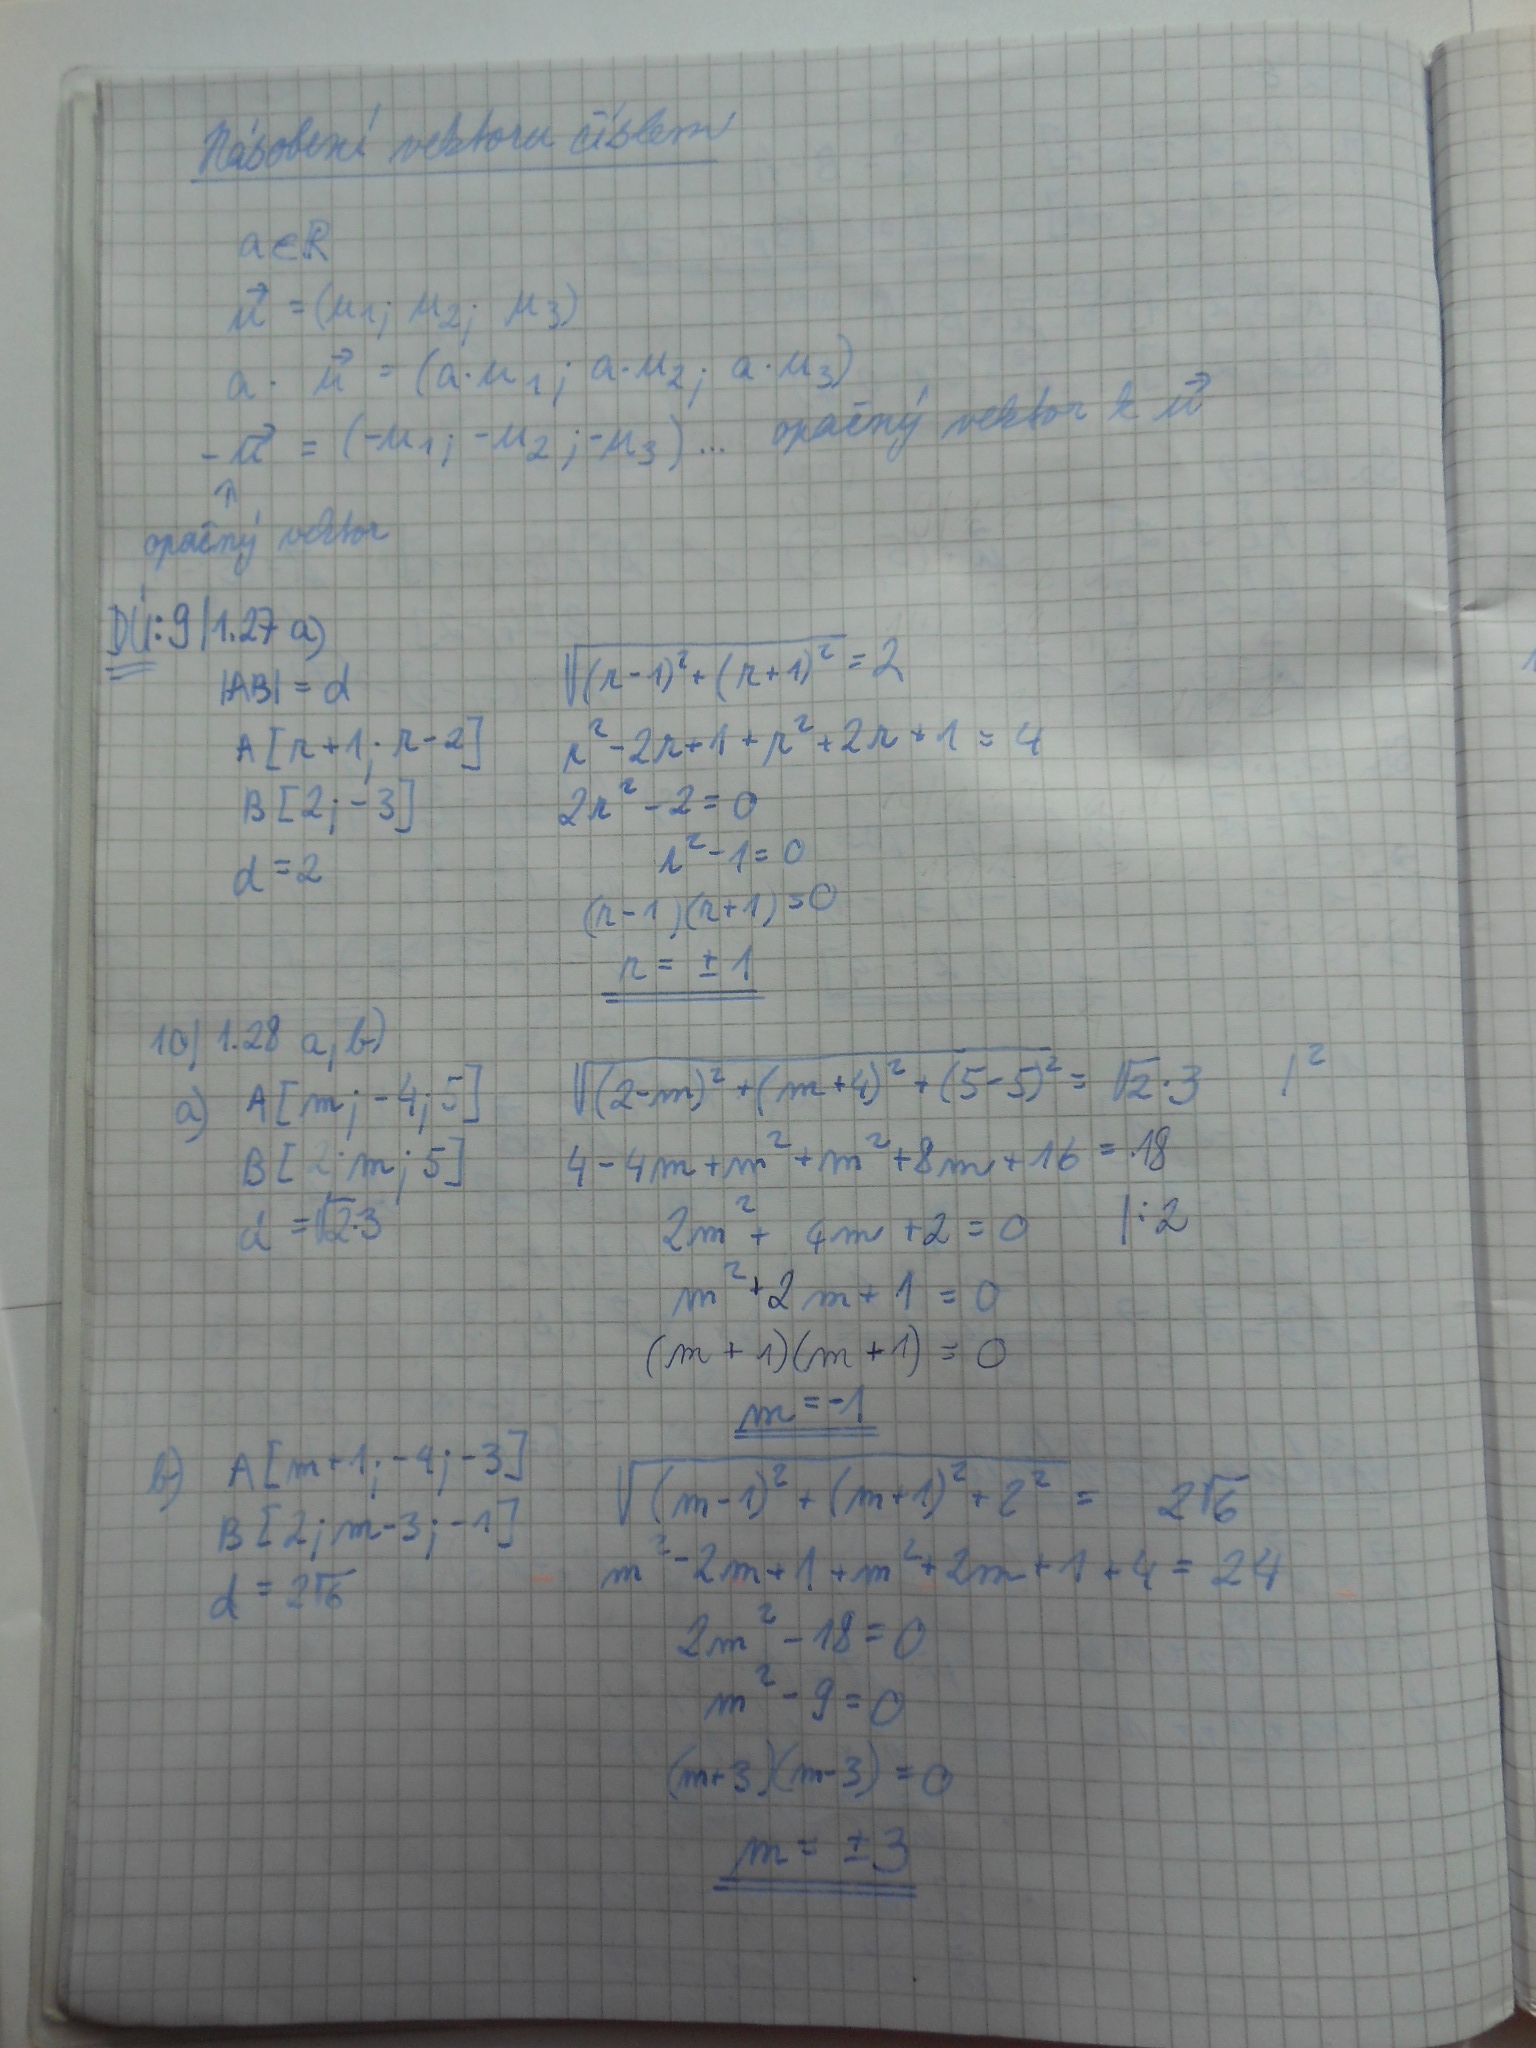 Násobení vektoru číslem
a∈R
u⃗ = (u₁; u₂; u₃)
a · u⃗ = (a·u₁; a·u₂; a·u₃)
-u⃗ = (-u₁; -u₂; -u₃)... opačný vektor k u⃗
↑
opačný vektor
DÚ: 9/1.27 a)
|AB| = d
A[r+1; r-2]
B[2; -3]
d = 2
√((r-1)² + (r+1)²) = 2
r² - 2r + 1 + r² + 2r + 1 = 4
2r² - 2 = 0
r² - 1 = 0
(r-1)(r+1) = 0
r = ±1
10/1.28 a, b)
a) A[m; -4; 5]
B[2; m; 5]
d = √2·3
√((2-m)² + (m+4)² + (5-5)²) = √2·3 /²
4 - 4m + m² + m² + 8m + 16 = 18
2m² + 4m + 2 = 0 /:2
m² + 2m + 1 = 0
(m + 1)(m + 1) = 0
m = -1
b) A[m+1; -4; -3]
B[2; m-3; -1]
d = 2√6
√((m-1)² + (m+1)² + 2²) = 2√6
m² - 2m + 1 + m² + 2m + 1 + 4 = 24
2m² - 18 = 0
m² - 9 = 0
(m+3)(m-3) = 0
m = ±3